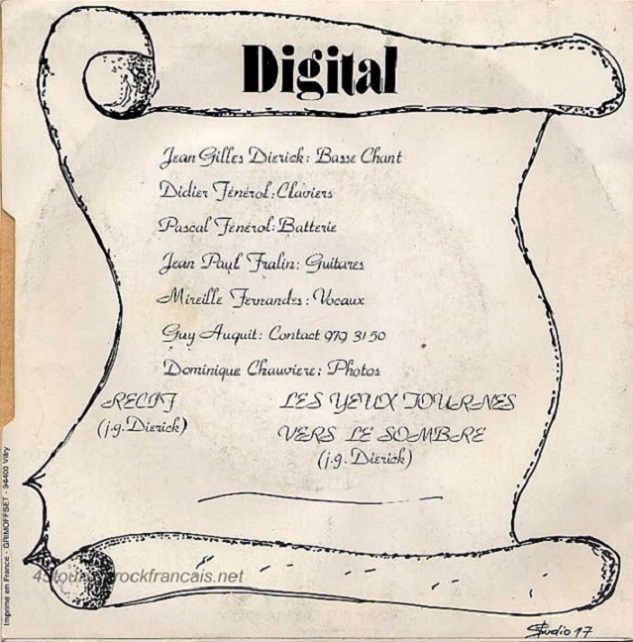 Digital
Jean Gilles Dierick: Basse Chant
Didier Fénérol: Claviers
Pascal Fénérol: Batterie
Jean Paul Fralin: Guitares
Mireille Fernandes: Vocaux
Guy Auquit: Contact 979 31 50
Dominique Chauviere: Photos
RECIF
(j.g. Dierick)
LES YEUX TOURNES
VERS LE SOMBRE
(j.g. Dierick)
Imprimé en France - GRIMOFFSET - 94400 Vitry
rockfrancais.net
Studio 17